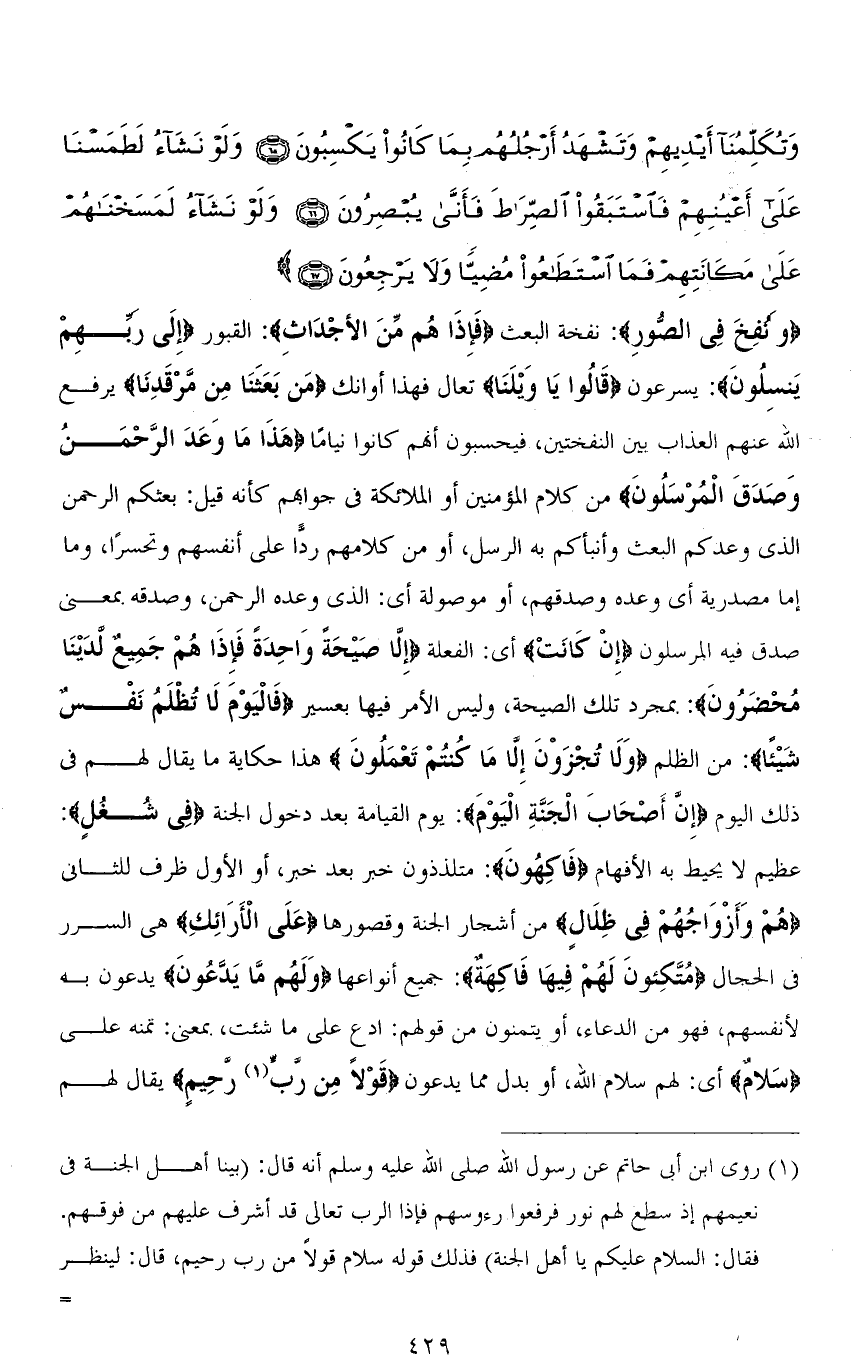 وَتُكَلِّمُنَآ أَيْدِيهِمْ وَتَشْهَدُ أَرْجُلُهُم بِمَا كَانُوا۟ يَكْسِبُونَ ۝٦٥ وَلَوْ نَشَآءُ لَطَمَسْنَا
عَلَىٰٓ أَعْيُنِهِمْ فَٱسْتَبَقُوا۟ ٱلصِّرَٰطَ فَأَنَّىٰ يُبْصِرُونَ ۝٦٦ وَلَوْ نَشَآءُ لَمَسَخْنَٰهُمْ
عَلَىٰ مَكَانَتِهِمْ فَمَا ٱسْتَطَٰعُوا۟ مُضِيًّا وَلَا يَرْجِعُونَ ۝٦٧ ﴾
﴿وَنُفِخَ فِى الصُّورِ﴾: نفخة البعث ﴿فَإِذَا هُم مِّنَ الأَجْدَاثِ﴾: القبور ﴿إِلَى رَبِّهِمْ
يَنسِلُونَ﴾: يسرعون ﴿قَالُوا يَا وَيْلَنَا﴾ تعال فهذا أوانك ﴿مَن بَعَثَنَا مِن مَّرْقَدِنَا﴾ يرفع
الله عنهم العذاب بين النفختين، فيحسبون أنهم كانوا نيامًا ﴿هَذَا مَا وَعَدَ الرَّحْمَنُ
وَصَدَقَ الْمُرْسَلُونَ﴾ من كلام المؤمنين أو الملائكة فى جوابهم كأنه قيل: بعثكم الرحمن
الذى وعدكم البعث وأنبأكم به الرسل، أو من كلامهم ردًّا على أنفسهم وتحسرًا، وما
إما مصدرية أى وعده وصدقهم، أو موصولة أى: الذى وعده الرحمن، وصدقه بمعنى
صدق فيه المرسلون ﴿إِنْ كَانَتْ﴾ أى: الفعلة ﴿إِلَّا صَيْحَةً وَاحِدَةً فَإِذَا هُمْ جَمِيعٌ لَّدَيْنَا
مُحْضَرُونَ﴾: بمجرد تلك الصيحة، وليس الأمر فيها بعسير ﴿فَالْيَوْمَ لَا تُظْلَمُ نَفْسٌ
شَيْئًا﴾: من الظلم ﴿وَلَا تُجْزَوْنَ إِلَّا مَا كُنتُمْ تَعْمَلُونَ﴾ هذا حكاية ما يقال لهم فى
ذلك اليوم ﴿إِنَّ أَصْحَابَ الْجَنَّةِ الْيَوْمَ﴾: يوم القيامة بعد دخول الجنة ﴿فِى شُغُلٍ﴾:
عظيم لا يحيط به الأفهام ﴿فَاكِهُونَ﴾: متلذذون خبر بعد خبر، أو الأول ظرف للثانى
﴿هُمْ وَأَزْوَاجُهُمْ فِى ظِلَالٍ﴾ من أشجار الجنة وقصورها ﴿عَلَى الْأَرَائِكِ﴾ هى السرر
فى الحجال ﴿مُتَّكِئُونَ لَهُمْ فِيهَا فَاكِهَةٌ﴾: جميع أنواعها ﴿وَلَهُم مَّا يَدَّعُونَ﴾ يدعون به
لأنفسهم، فهو من الدعاء، أو يتمنون من قولهم: ادع على ما شئت، بمعنى: تمنه على
﴿سَلامٌ﴾ أى: لهم سلام الله، أو بدل مما يدعون ﴿قَوْلاً مِن رَّبٍّ(١) رَّحِيمٍ﴾ يقال لهم
(١) روى ابن أبى حاتم عن رسول الله صلى الله عليه وسلم أنه قال: (بينا أهل الجنة فى
نعيمهم إذ سطع لهم نور فرفعوا رءوسهم فإذا الرب تعالى قد أشرف عليهم من فوقهم.
فقال: السلام عليكم يا أهل الجنة) فذلك قوله سلام قولاً من رب رحيم، قال: لينظر
=
٤٢٩